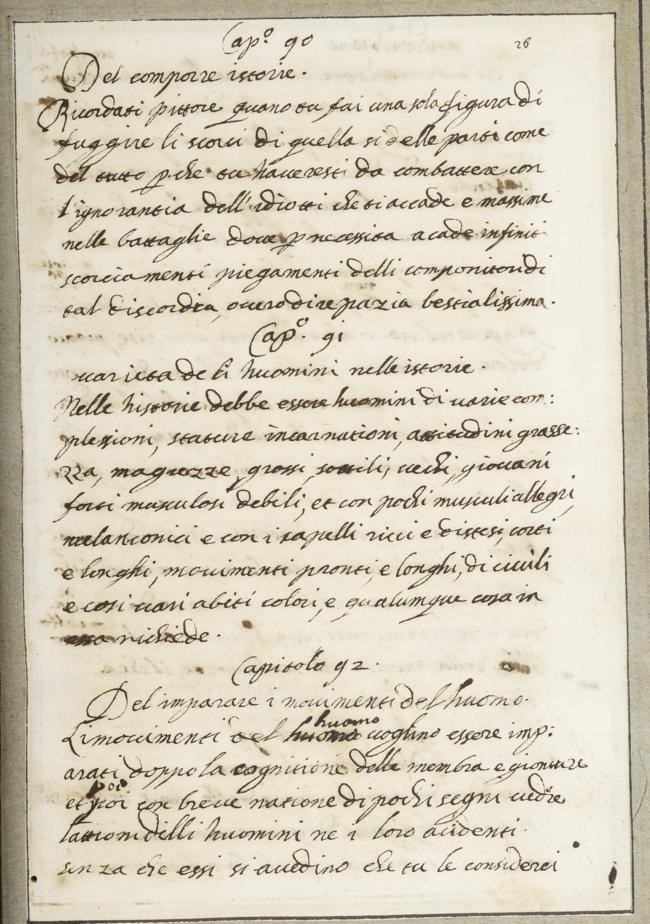 Capº 90
26
Del comporre istorie.
Ricordati pittore quano tu fai una sola figura di
fuggire li scorci di quella si delle parti come
del tutto p che tu haveresti da combattere con
l'ignorantia dell'idiotti che ti accade e massime
nelle battaglie dove p necessita acade infiniti
scorciamenti piegamenti delli componitori di
tal discordia, overo dire pazia bestialissima.
Capº. 91
varieta de li huomini nelle istorie.
Nelle historie debbe essere huomini di varie com:
plesioni, stature incarnationi, attitudini grasse:
zza, magrezze, grossi, sottili, vechi, giovani
forti musculosi debili, et con pochi musculi allegri,
melanconici e con i capelli ricci e distesi, corti
e longhi, movimenti pronti, e longhi, di civili
e cosi vari abiti colori, e qualumque cosa in
essa richiede.
Capitolo 92.
Del imparare i movimenti del huomo.
huomo
Li movimenti del voglino essere imp:
arati doppo la cognitione delle membra e gionture
poi
et con breve natione di pochi segni vedre
lattioni delli huomini ne i loro acidenti
senza che essi si avedino che tu le consideri